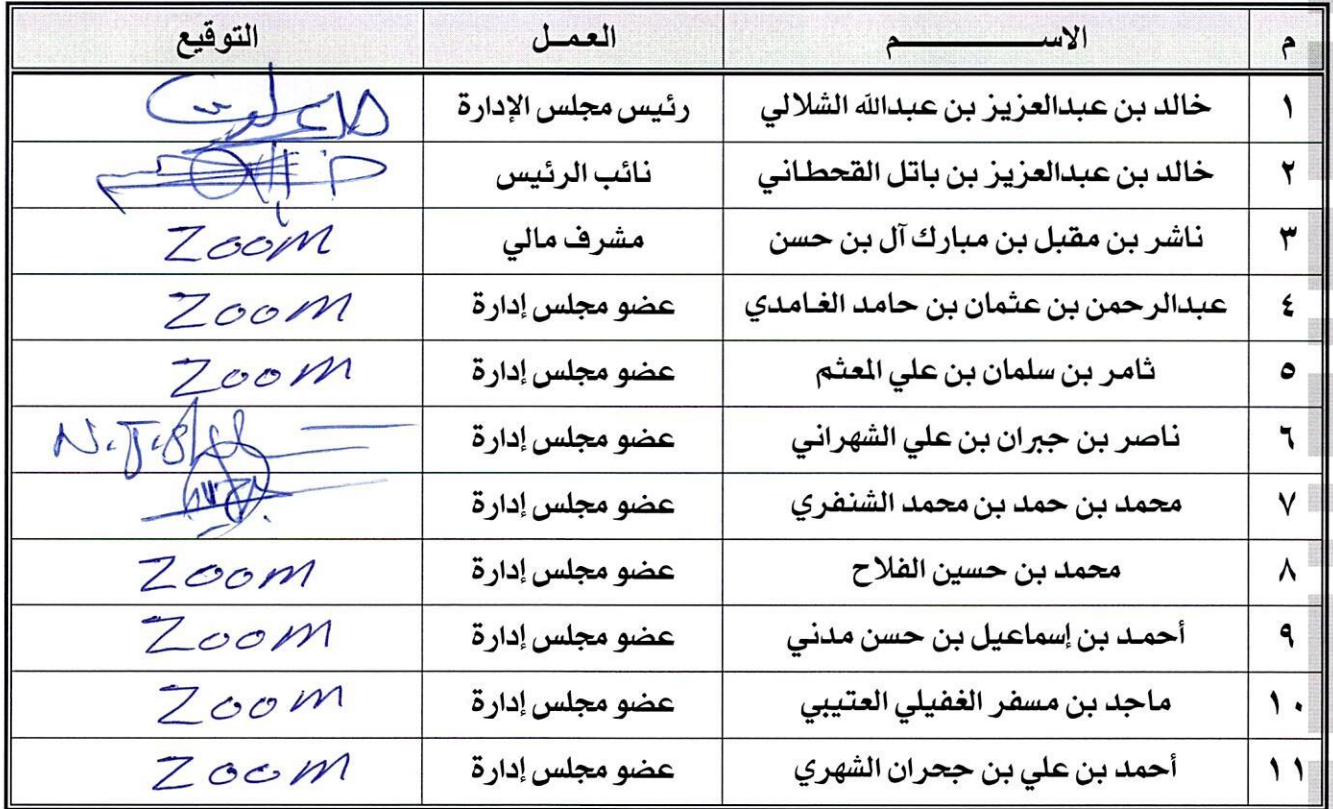 م الاســـــــــــم العمـــل التوقيع
١ خالد بن عبدالعزيز بن عبدالله الشلالي رئيس مجلس الإدارة
٢ خالد بن عبدالعزيز بن باتل القحطاني نائب الرئيس
٣ ناشر بن مقبل بن مبارك آل بن حسن مشرف مالي Zoom
٤ عبدالرحمن بن عثمان بن حامد الغامدي عضو مجلس إدارة Zoom
٥ ثامر بن سلمان بن علي المعثم عضو مجلس إدارة Zoom
٦ ناصر بن جبران بن علي الشهراني عضو مجلس إدارة
٧ محمد بن حمد بن محمد الشنفري عضو مجلس إدارة
٨ محمد بن حسين الفلاح عضو مجلس إدارة Zoom
٩ أحمد بن إسماعيل بن حسن مدني عضو مجلس إدارة Zoom
١٠ ماجد بن مسفر الغفيلي العتيبي عضو مجلس إدارة Zoom
١١ أحمد بن علي بن جحران الشهري عضو مجلس إدارة Zoom